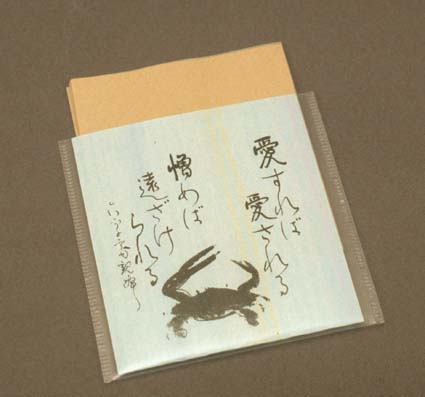 愛すれば
愛される
憎めば
遠ざけ
られる